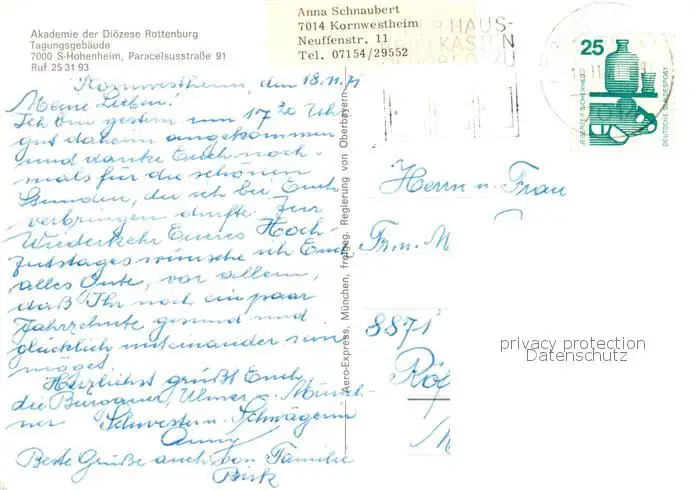 Akademie der Diözese Rottenburg
Tagungsgebäude
7000 S-Hohenheim, Paracelsusstraße 91
Ruf 25 31 93
Anna Schnaubert
7014 Kornwestheim
Neuffenstr. 11
Tel. 07154/29552
HAUS-
KASTEN
25
JEDERZEIT SICHERHEIT
DEUTSCHE BUNDESPOST
Kornwestheim, den 18.11.71
Meine Lieben!
Ich bin gestern um 17 30 Uhr
gut daheim angekommen
und danke Euch noch-
mals für die schönen
Stunden, die ich bei Euch
verbringen durfte. Zur
Wiederkehr Eueres Hoch-
zeitstages wünsche ich Euch
alles Gute, vor allem,
daß Ihr noch ein paar
Jahrzehnte gesund und
glücklich miteinander sein
möget.
Herzlichst grüßt Euch
die Burgauer, Ulmer u. Münch-
ner Schwestern u. Schwägerin
Anny
Beste Grüße auch von Familie
Birk
Aero-Express, München, freigeg. Regierung von Oberbayern
Herrn u. Frau
Fr. u. M
8871
privacy protection
Datenschutz